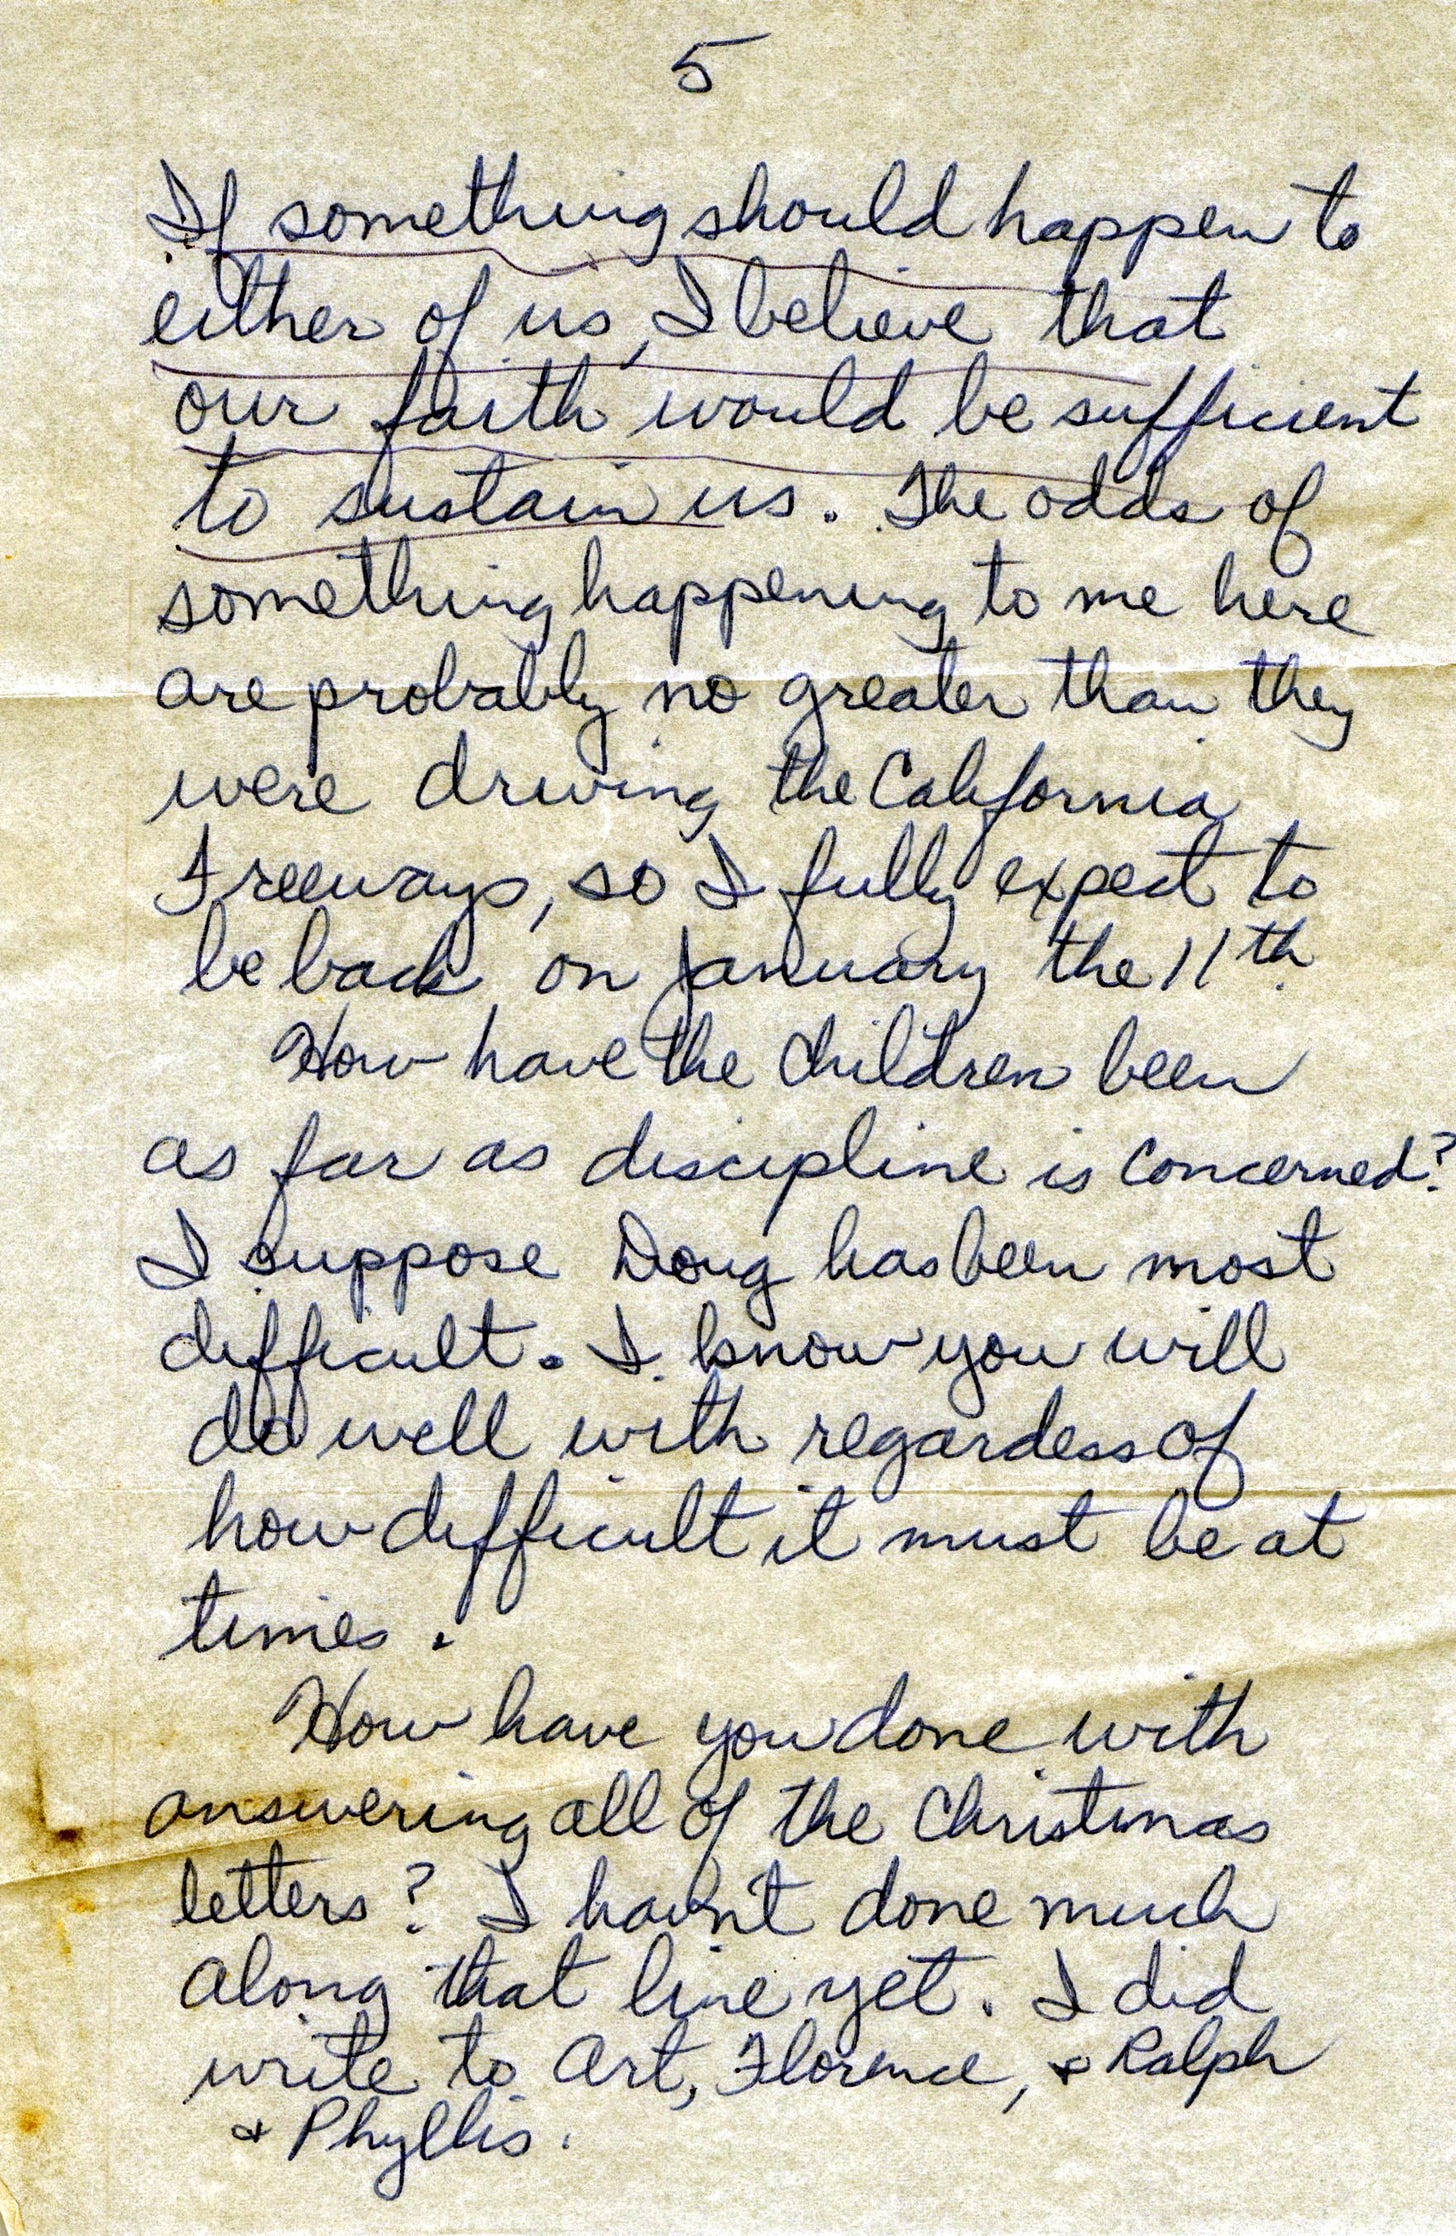 5
If something should happen to
either of us, I believe that
our faith would be sufficient
to sustain us. The odds of
something happening to me here
are probably no greater than they
were driving the California
Freeways, so I fully expect to
be back on January the 11th.
How have the children been
as far as discipline is concerned?
I suppose Doug has been most
difficult. I know you will
do well with regardess of
how difficult it must be at
times.
How have you done with
answering all of the Christmas
letters? I havn't done much
along that line yet. I did
write to Art, Florence, & Ralph
& Phyllis.